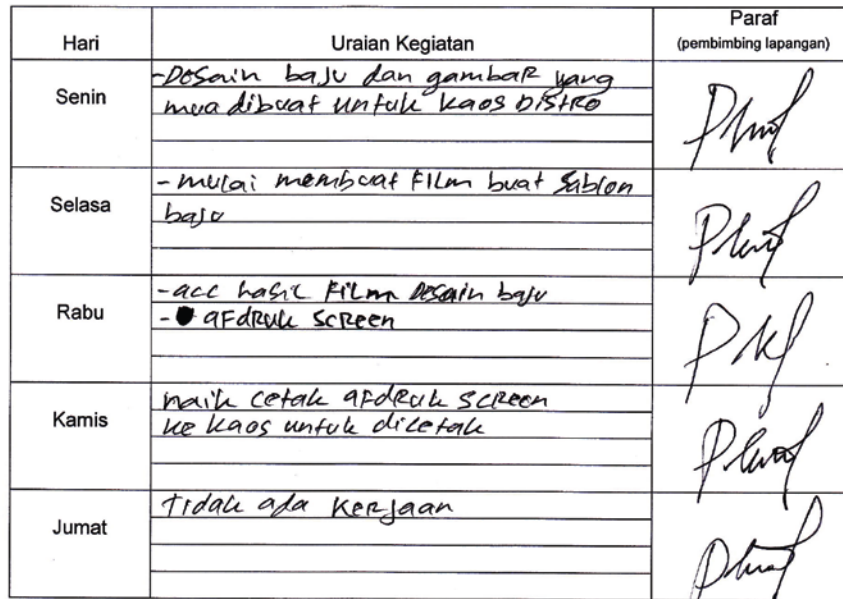 Hari Uraian Kegiatan Paraf
(pembimbing lapangan)
Senin
-Desain baju dan gambar yang
mua dibuat untuk kaos Distro
Selasa
- mulai membuat Film buat Sablon
baju
Rabu
-acc hasil Film Desain baju
- afdruk screen
Kamis
naik cetak afdruk screen
ke kaos untuk dicetak
Jumat
Tidak ada Kerjaan